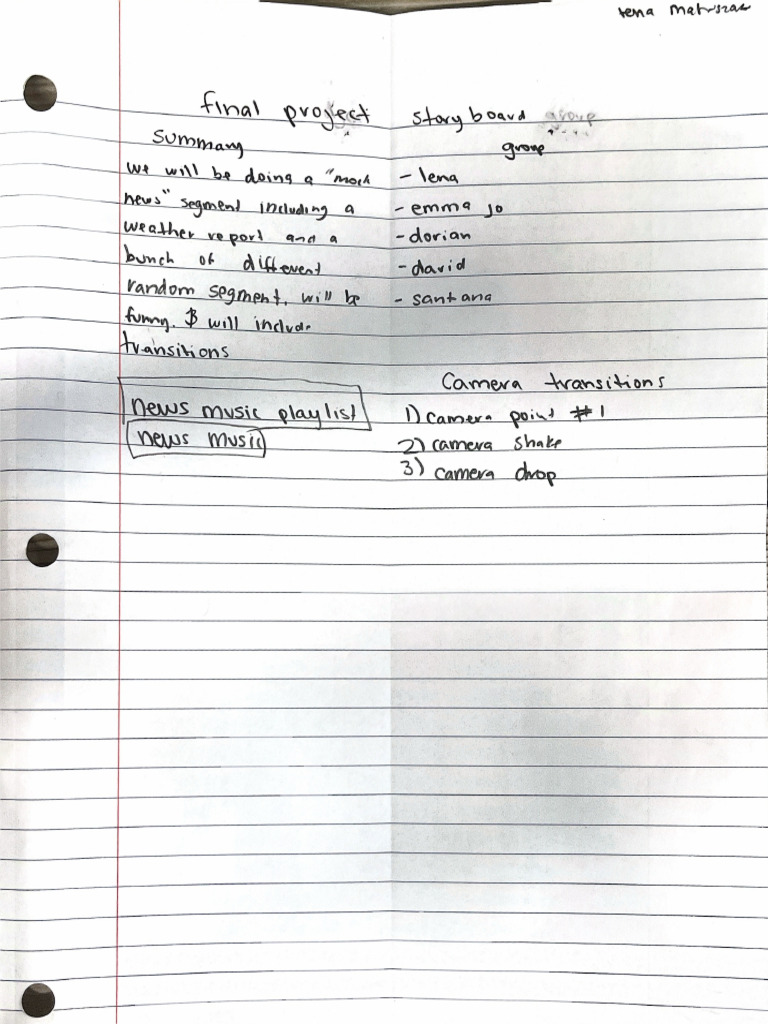 lena
final project storyboard group
summary
we will be doing a "mock
news" segment including a
weather report and a
bunch of different
random segment. will be
funny. & will include
transitions
news music playlist
news music
group
- lena
- emma jo
- dorian
- david
- santana
Camera transitions
1) camera point #1
2) camera shake
3) camera drop